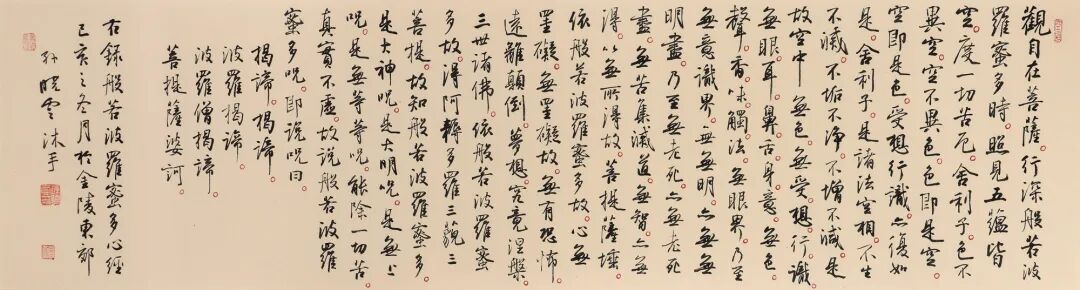 觀自在菩薩。行深般若波
羅蜜多時。照見五蘊皆
空。度一切苦厄。舍利子。色不
異空。空不異色。色即是空。
空即是色。受想行識。亦復如
是。舍利子。是諸法空相。不生
不滅。不垢不淨。不增不減。是
故空中。無色。無受想行識。
無眼耳鼻舌身意。無色
聲香味觸法。無眼界。乃至
無意識界。無無明。亦無無
明盡。乃至無老死。亦無老死
盡。無苦集滅道。無智亦無
得。以無所得故。菩提薩埵。
依般若波羅蜜多故。心無
罣礙。無罣礙故。無有恐怖。
遠離顛倒夢想。究竟涅槃。
三世諸佛。依般若波羅蜜
多故。得阿耨多羅三藐三
菩提。故知般若波羅蜜多
是大神咒。是大明咒。是無上
咒。是無等等咒。能除一切苦。
真實不虛。故說般若波羅
蜜多咒。即說咒曰
揭諦。揭諦。
波羅揭諦。
波羅僧揭諦。
菩提薩婆訶。
右錄般若波羅蜜多心經
己亥之冬月於金陵東郊
孫曉雲沐手